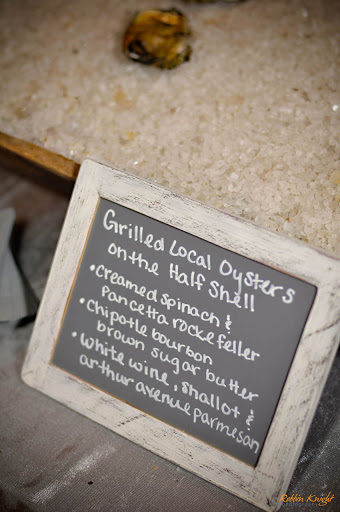 Grilled Local Oysters
on the Half Shell
• creamed spinach &
pancetta rockefeller
• chipotle bourbon
brown sugar butter
• white wine, shallot &
arthur avenue parmesan
Robbin Knight
photography